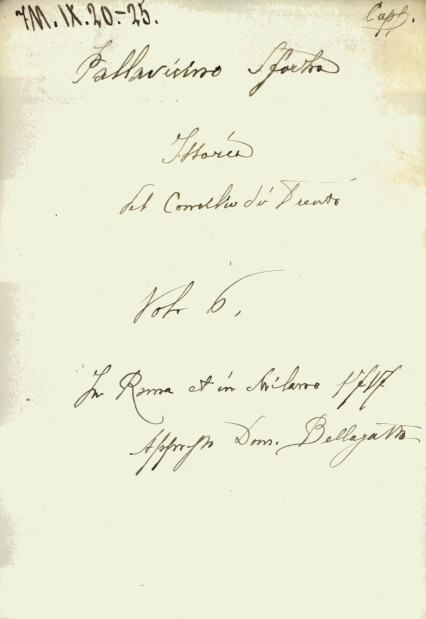 7M. IX. 20.-25.
Capp.
Pallavicino Sforza
Istoria
del Concilio di Trento
Vol. 6.
In Roma et in Milano 1717
Appresso Dom. Bellagatta